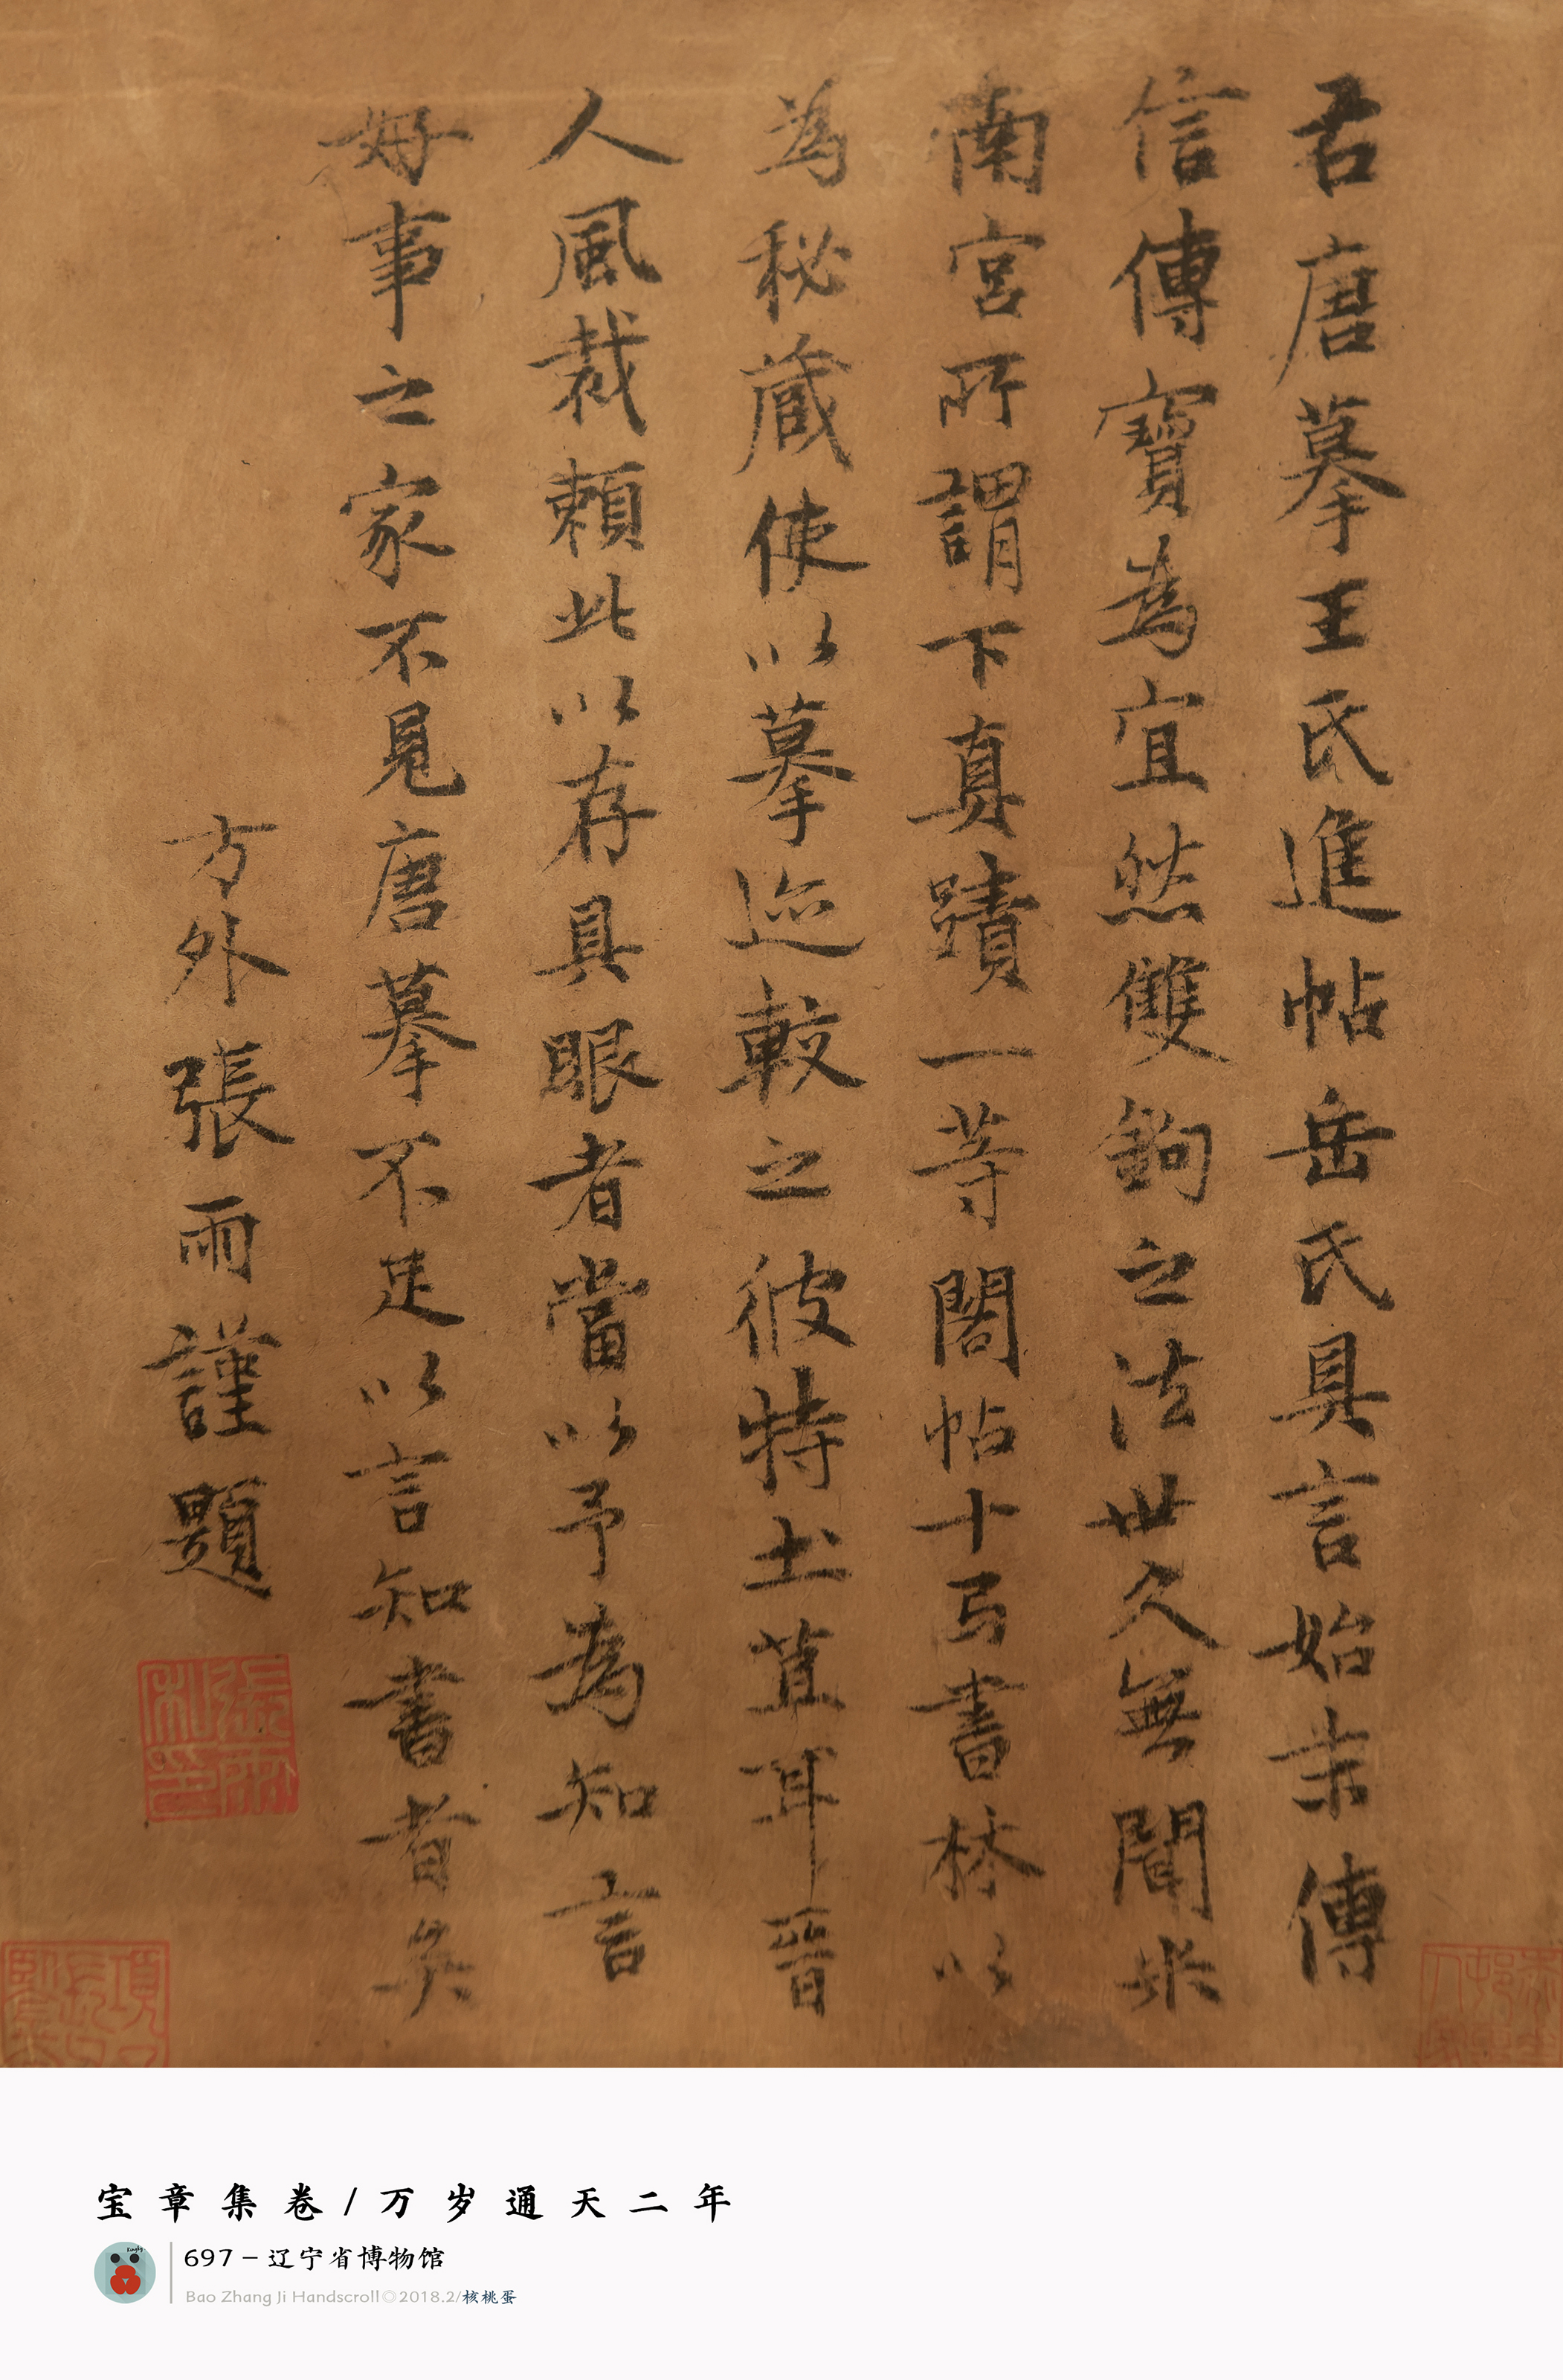 右唐摹王氏進帖岳氏具言始末傳
信傳寶為宜然雙鉤之法世久無聞米
南宮所謂下真蹟一等閣帖十弓書林以
為秘藏使以摹迹較之彼特土苴耳晉
人風裁賴此以存具眼者當以予為知言
好事之家不見唐摹不足以言知書者矣
方外張雨謹題
張雨私印
宝章集卷/万岁通天二年
697-辽宁省博物馆
Bao Zhang Ji Handscroll◎2018.2/核桃蛋